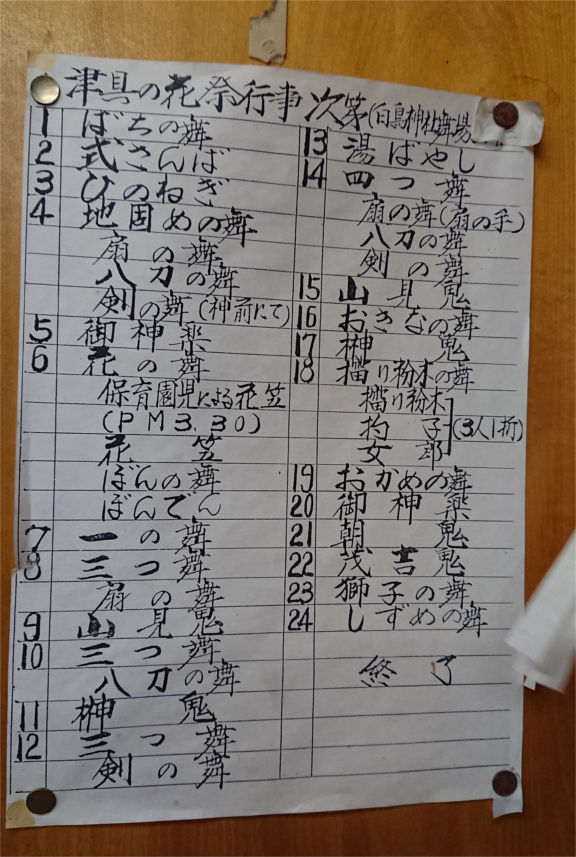 津具の花祭行事次第(白鳥神社舞場
1 ばちの舞
2 式さんば
3 ひのねぎ
4 地固めの舞
扇の舞
八刀の舞
剣の舞(神前にて)
5 御神楽
6 花の舞
保育園児による花笠
(PM3.30)
花笠
ぼんの舞
ぼんでん
7 一の舞
8 三つ舞
扇の舞
9 山見鬼
10 三つ舞
八刀の舞
11 榊鬼
12 三つ舞
剣の舞
13 湯ばやし
14 四つ舞
扇の舞(扇の手)
八刀の舞
剣の舞
15 山見鬼
16 おきなの舞
17 榊鬼
18 擂り粉木の舞
擂り粉木
杓子
女郎
(3人1折)
19 おかめの舞
20 御神楽
21 朝鬼
22 茂吉鬼
23 獅子の舞
24 しずめの舞
終了